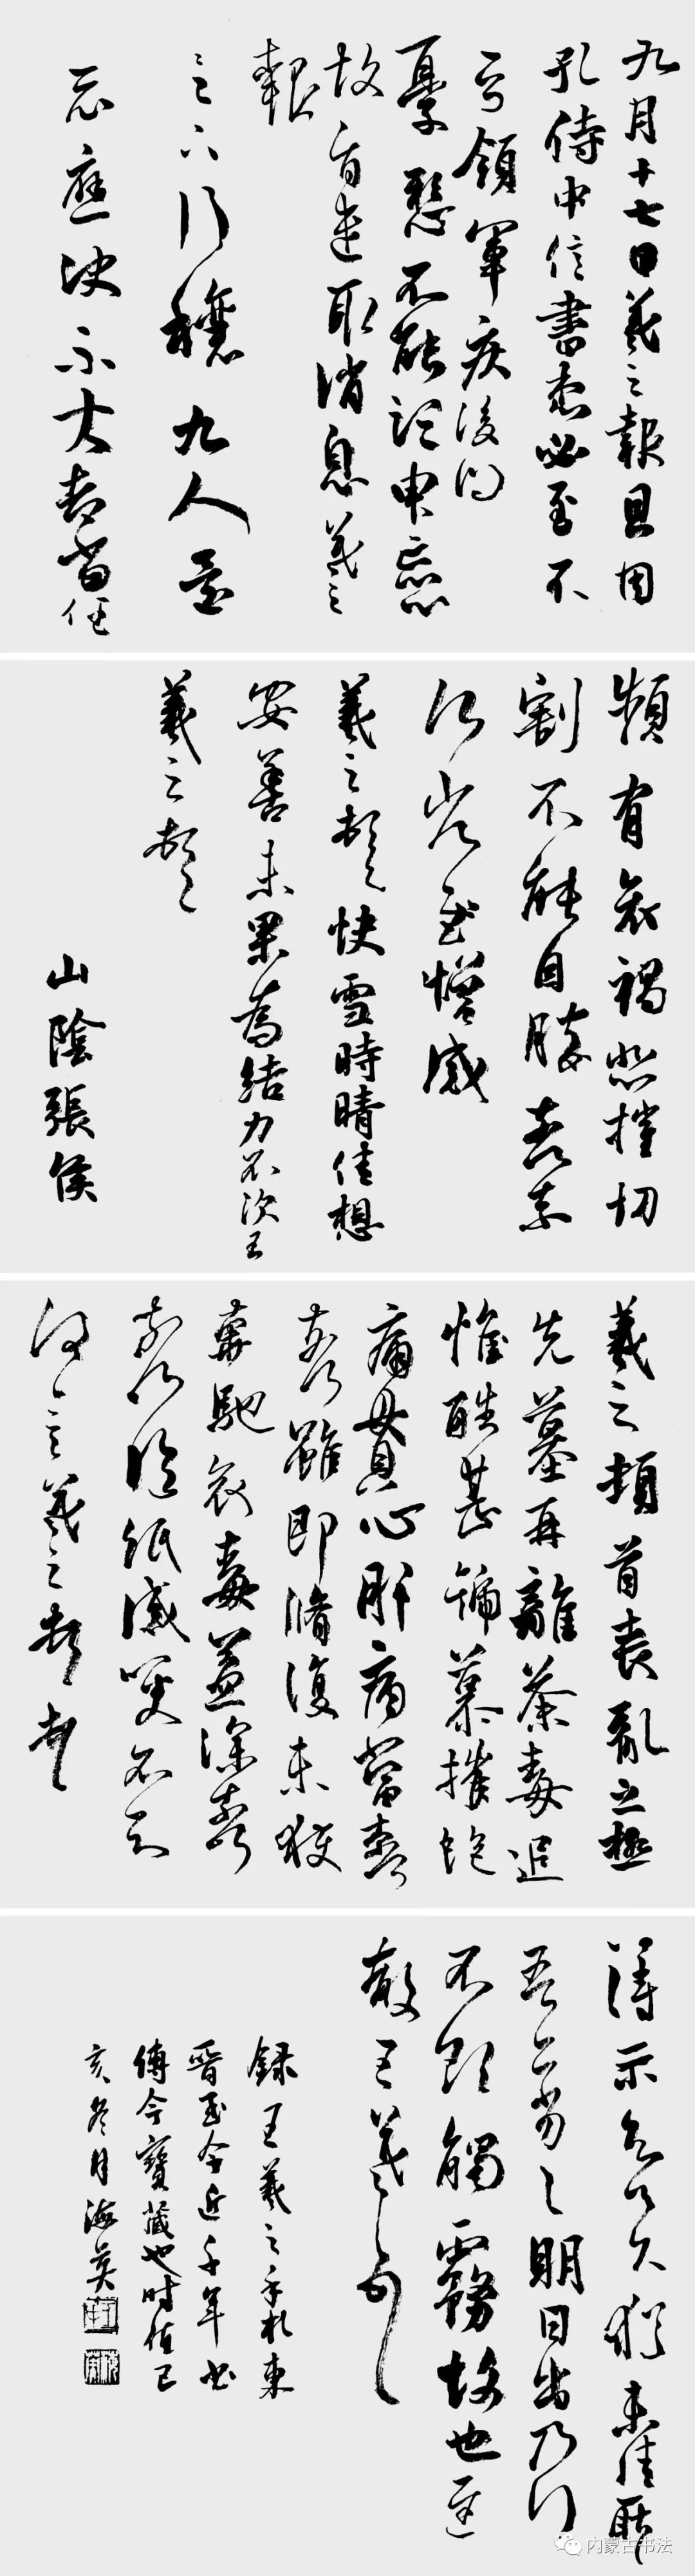 九月十七日羲之報且因
孔侍中信書想必至不
知領軍疾後問
憂懸不能須臾忘心
故旨遣取消息羲之
報
忘應決不大都當任
頻有哀禍悲摧切
割不能自勝奈何奈
何省慰增感
羲之頓首快雪時晴佳想
安善未果為結力不次王
羲之頓首
山陰張侯
羲之頓首喪亂之極
先墓再離荼毒追
惟酷甚號慕摧絕
痛貫心肝痛當奈何
奈何雖即脩復未獲
奔馳哀毒益深奈何
奈何臨紙感哽不知
何言羲之頓首頓首
得示知足下猶未佳耿耿
吾亦劣劣明日出乃行
不欲觸霧故也遲
散王羲之頓首
錄王羲之手札東
晉至今近千年書
傳今寶藏也時值己
亥冬月海英
内蒙古书法